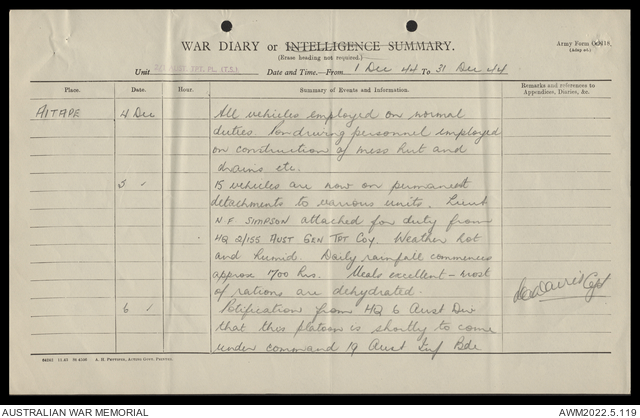 WAR DIARY or INTELLIGENCE SUMMARY.
(Erase heading not required.)
Army Form
Unit TPT. PL. (T.S.) Date and Time—From 1 Dec 44 To 31 Dec 44
Place. Date. Hour. Summary of Events and Information. Remarks and references to Appendices, Diaries, &c.
AITAPE 4 Dec All vehicles employed on normal
duties. Non driving personnel employed
on construction of mess hut and
drains etc.
5 " 15 vehicles are now on permanent
detachments to various units. Lieut
N F SIMPSON attached for duty from
HQ 2/155 AUST GEN TPT COY. Weather hot
and humid. Daily rainfall commences
approx 1700 hrs. Meals excellent - most
of rations are dehydrated.
6 " Notification from HQ 6 Aust Div
that this platoon is shortly to come
under command 19 Aust Inf Bde
Capt
AUSTRALIAN WAR MEMORIAL
AWM2022.5.119